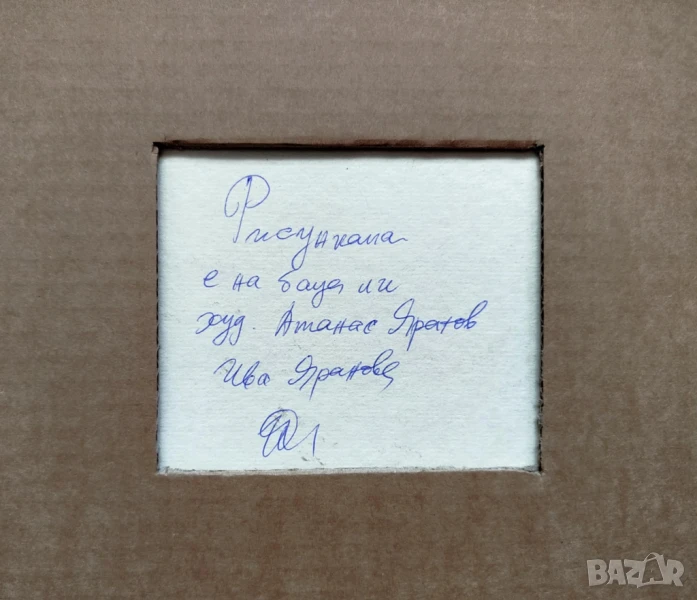 Рисунката
е на баща ми
худ. Атанас Яранов
Ива Яранова
BAZAR